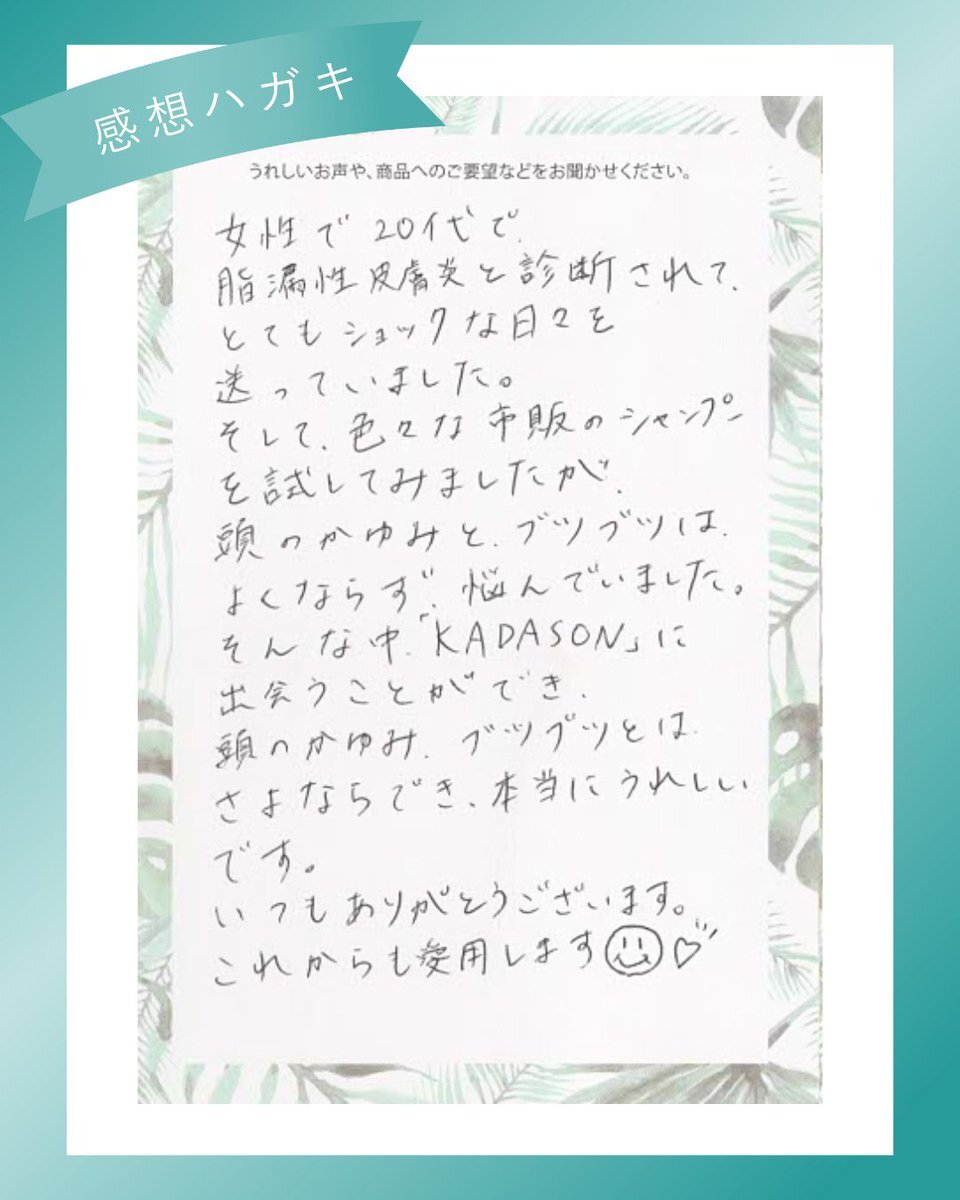 感想ハガキ
うれしいお声や、商品へのご要望などをお聞かせください。
女性で20代で、
脂漏性皮膚炎と診断されて、
とてもショックな日々を
送っていました。
そして、色々な市販のシャンプー
を試してみましたが、
頭のかゆみと、ブツブツは、
よくならず、悩んでいました。
そんな中、「KADASON」に
出会うことができ、
頭のかゆみ、ブツブツとは、
さよならでき、本当にうれしい
です。
いつもありがとうございます。
これからも愛用します